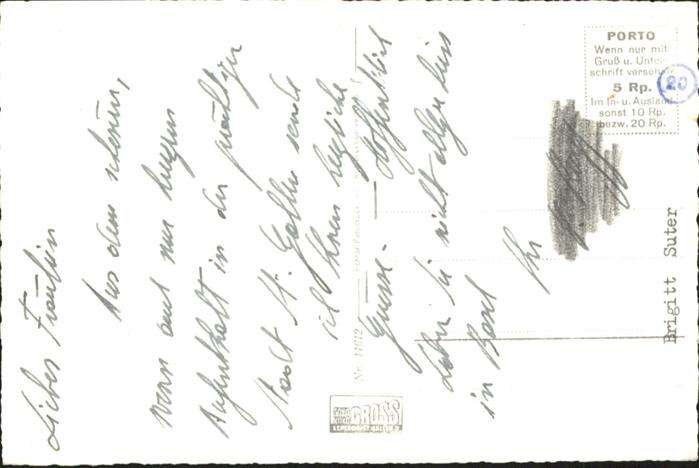 Liebes Fräulein
Aus dem schönen,
wenn auch nur kurzen
Aufenthalt in der prächtigen
Stadt St. Gallen sende
ich Ihnen herzliche
Grüsse. – Hoffentlich
haben Sie nicht allzu heiss
in Basel
Ihr
Brigitt Suter
PORTO
Wenn nur mit
Gruß u. Unter-
schrift versehen
5 Rp.
Im In- u. Ausland
sonst 10 Rp.
bezw. 20 Rp.
20
Nr. 11612
GROSS